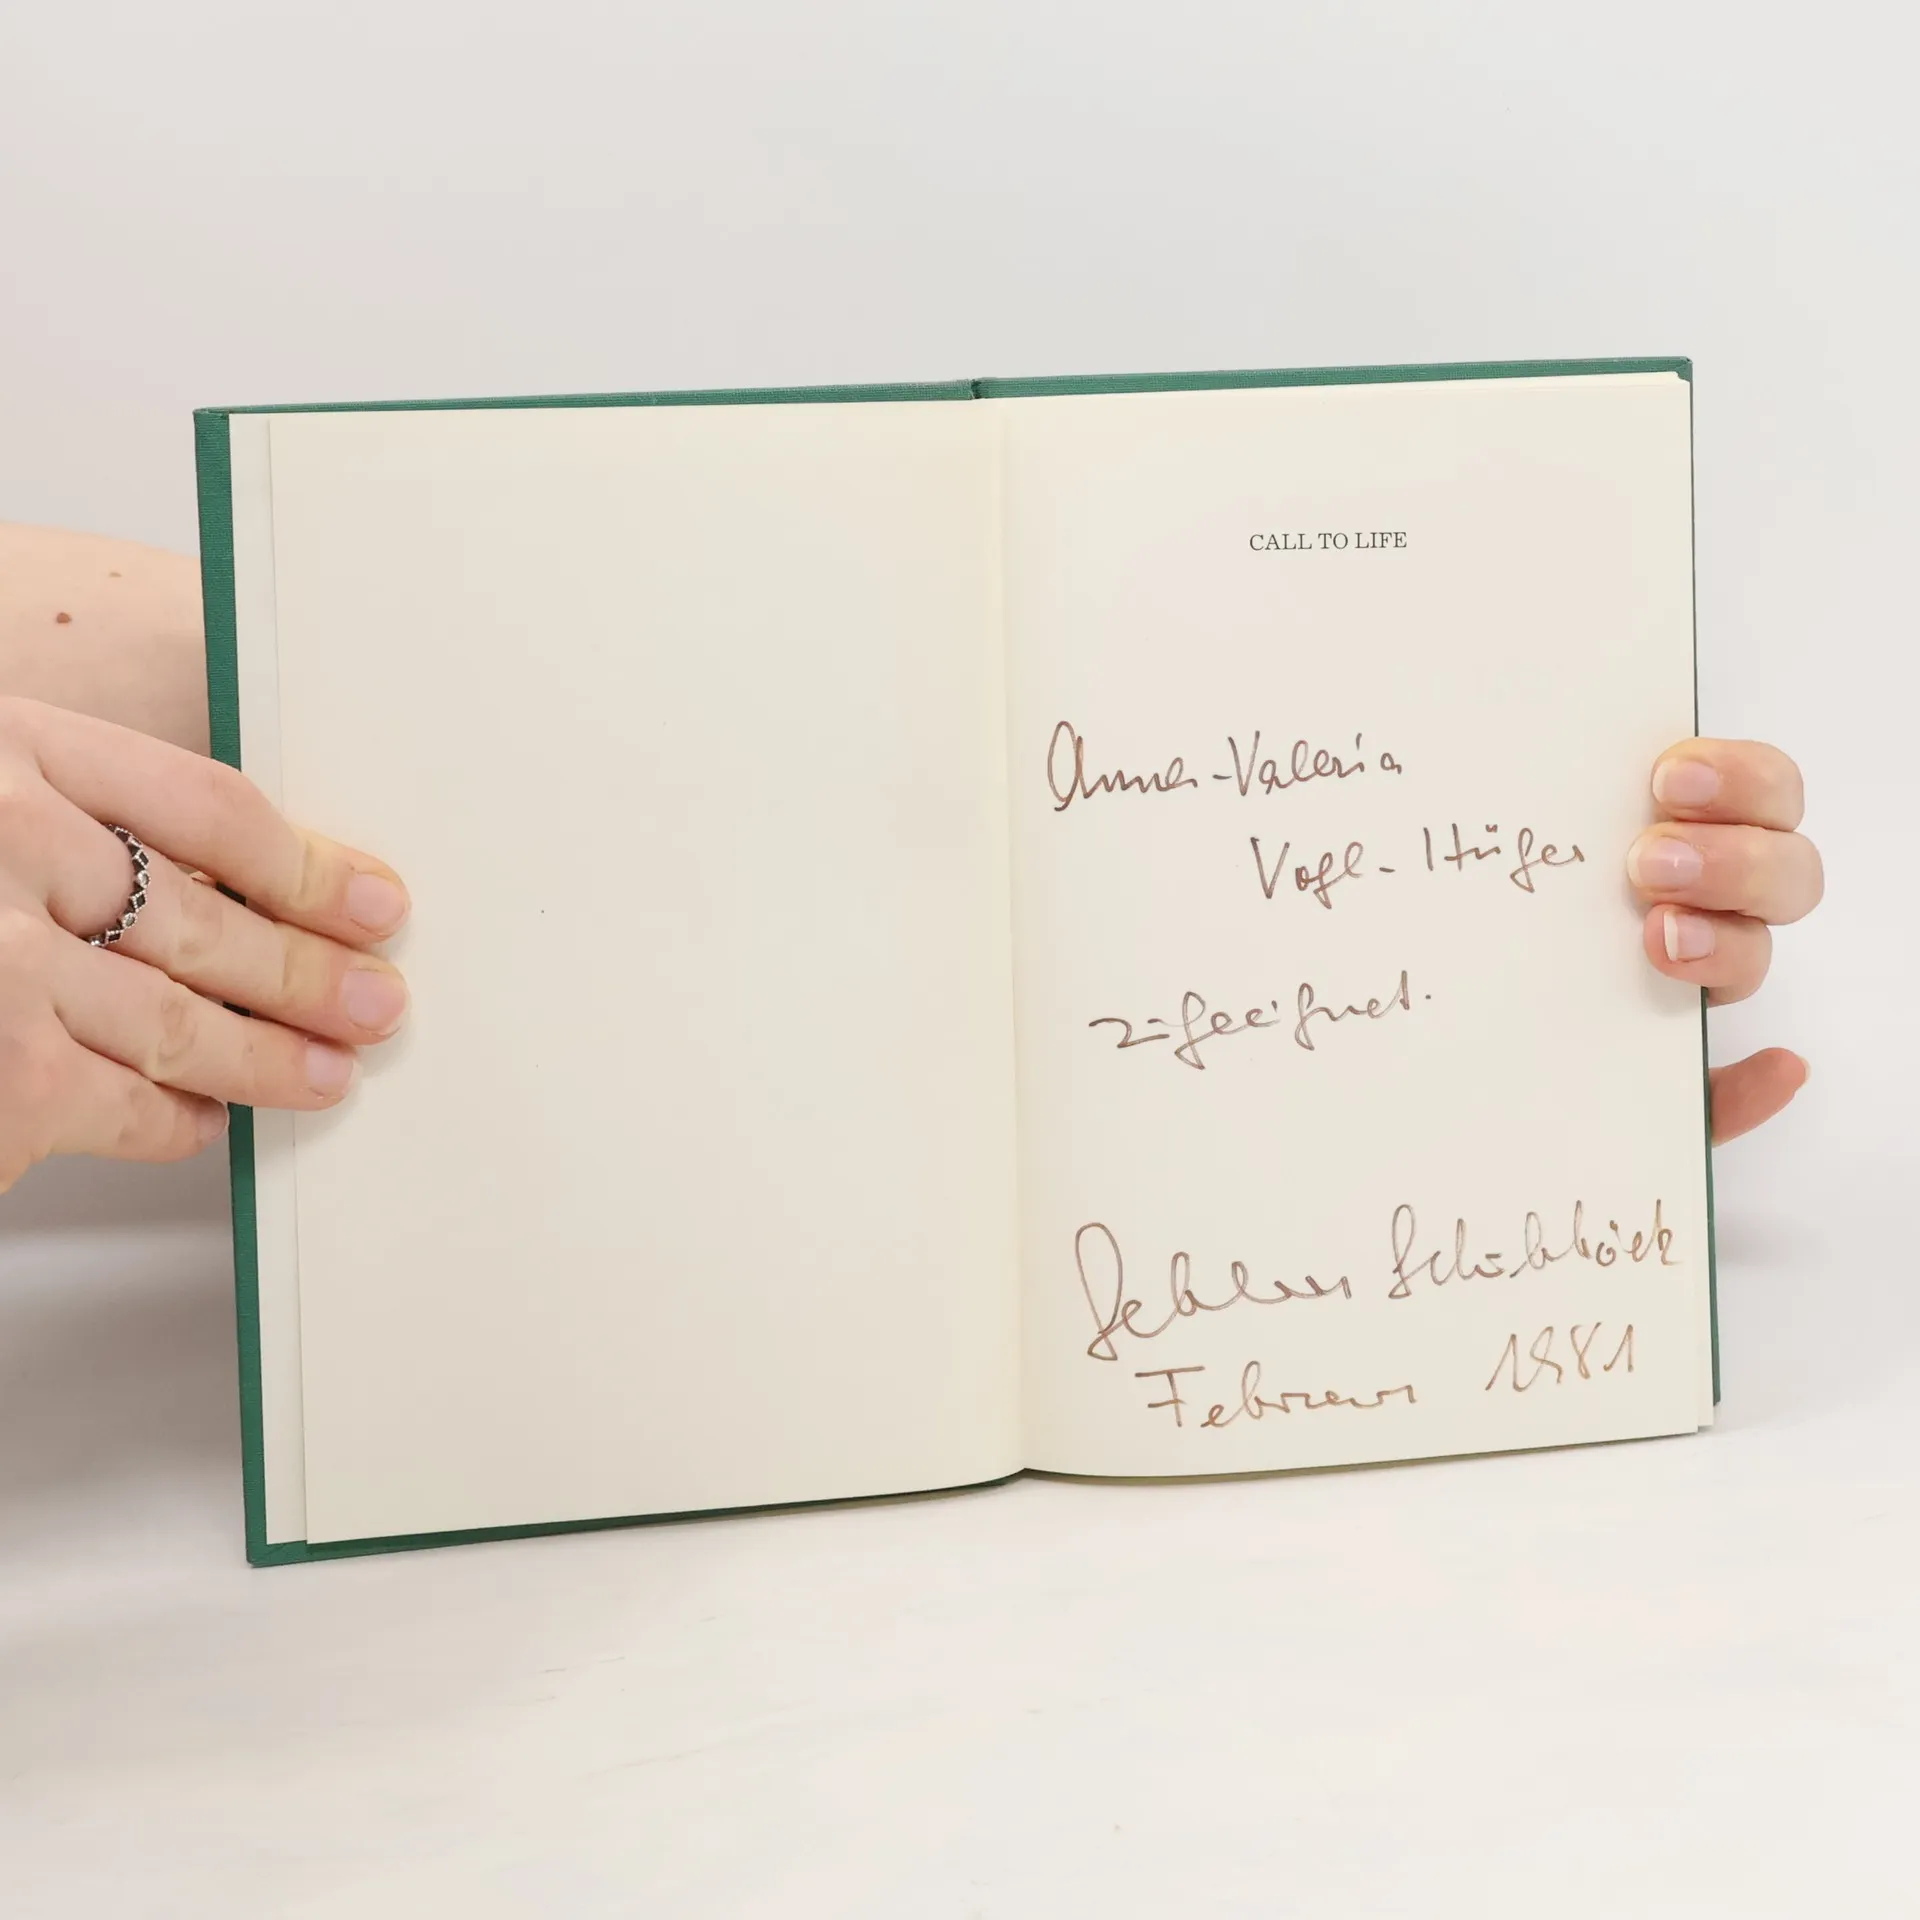 CALL TO LIFE
Anna-Valeria
Vogl-Hüger
zugeeignet.
Schönböck
Februar 1981